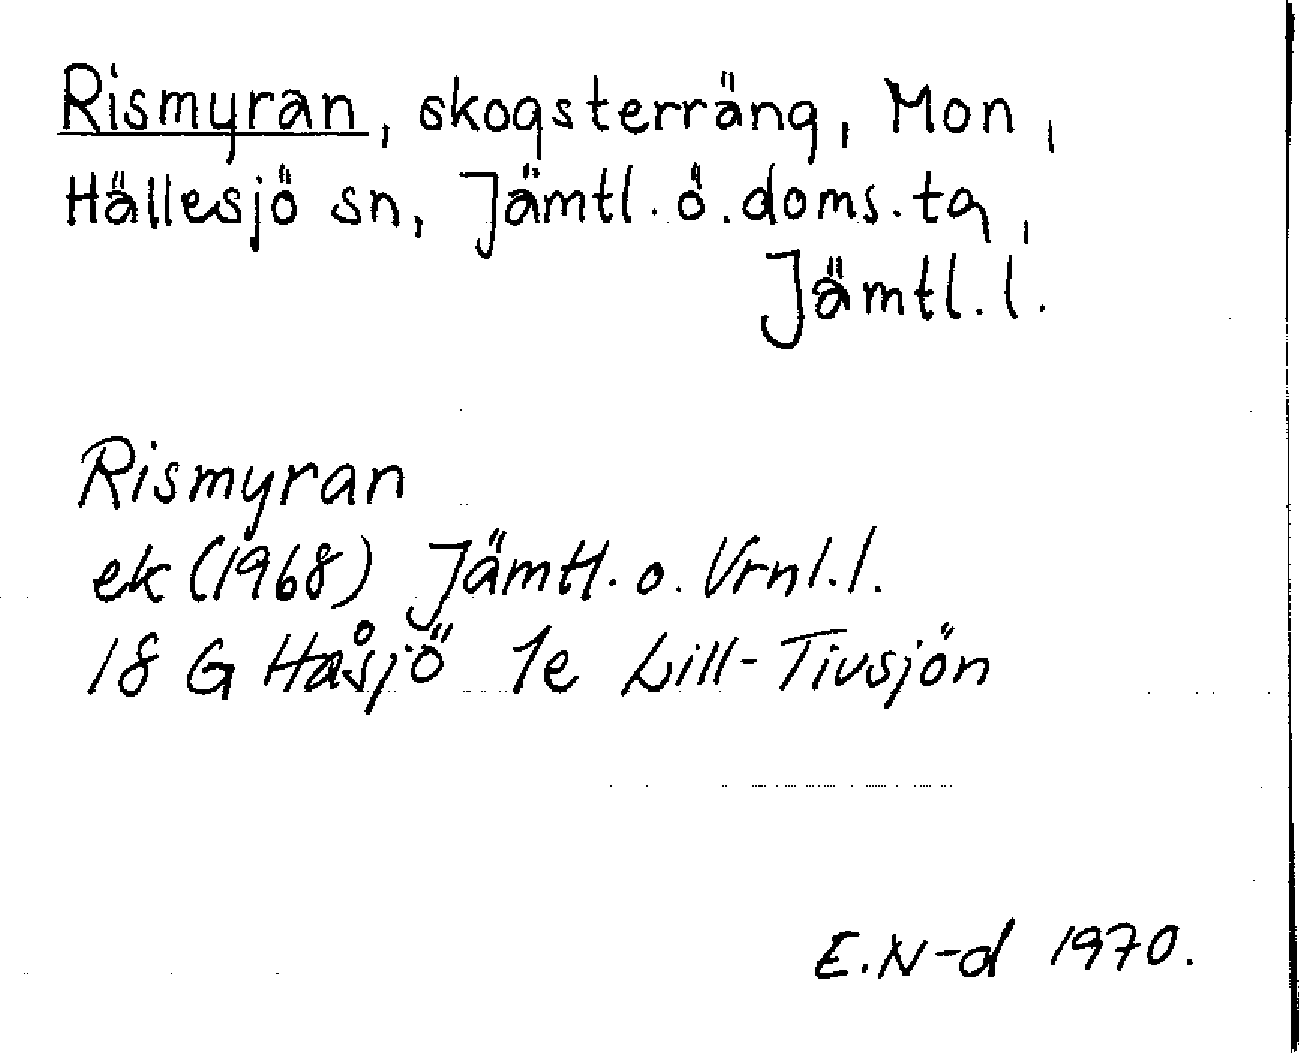 Rismyran, skogsterräng, Mon,
Hällesjö sn, Jämtl. ö. doms. ta,
Jämtl. l.
Rismyran
ek (1968) Jämtl. o. Vrnl. l.
18 G Håsjö 1e Lill-Tivsjön
E.N-d 1970.